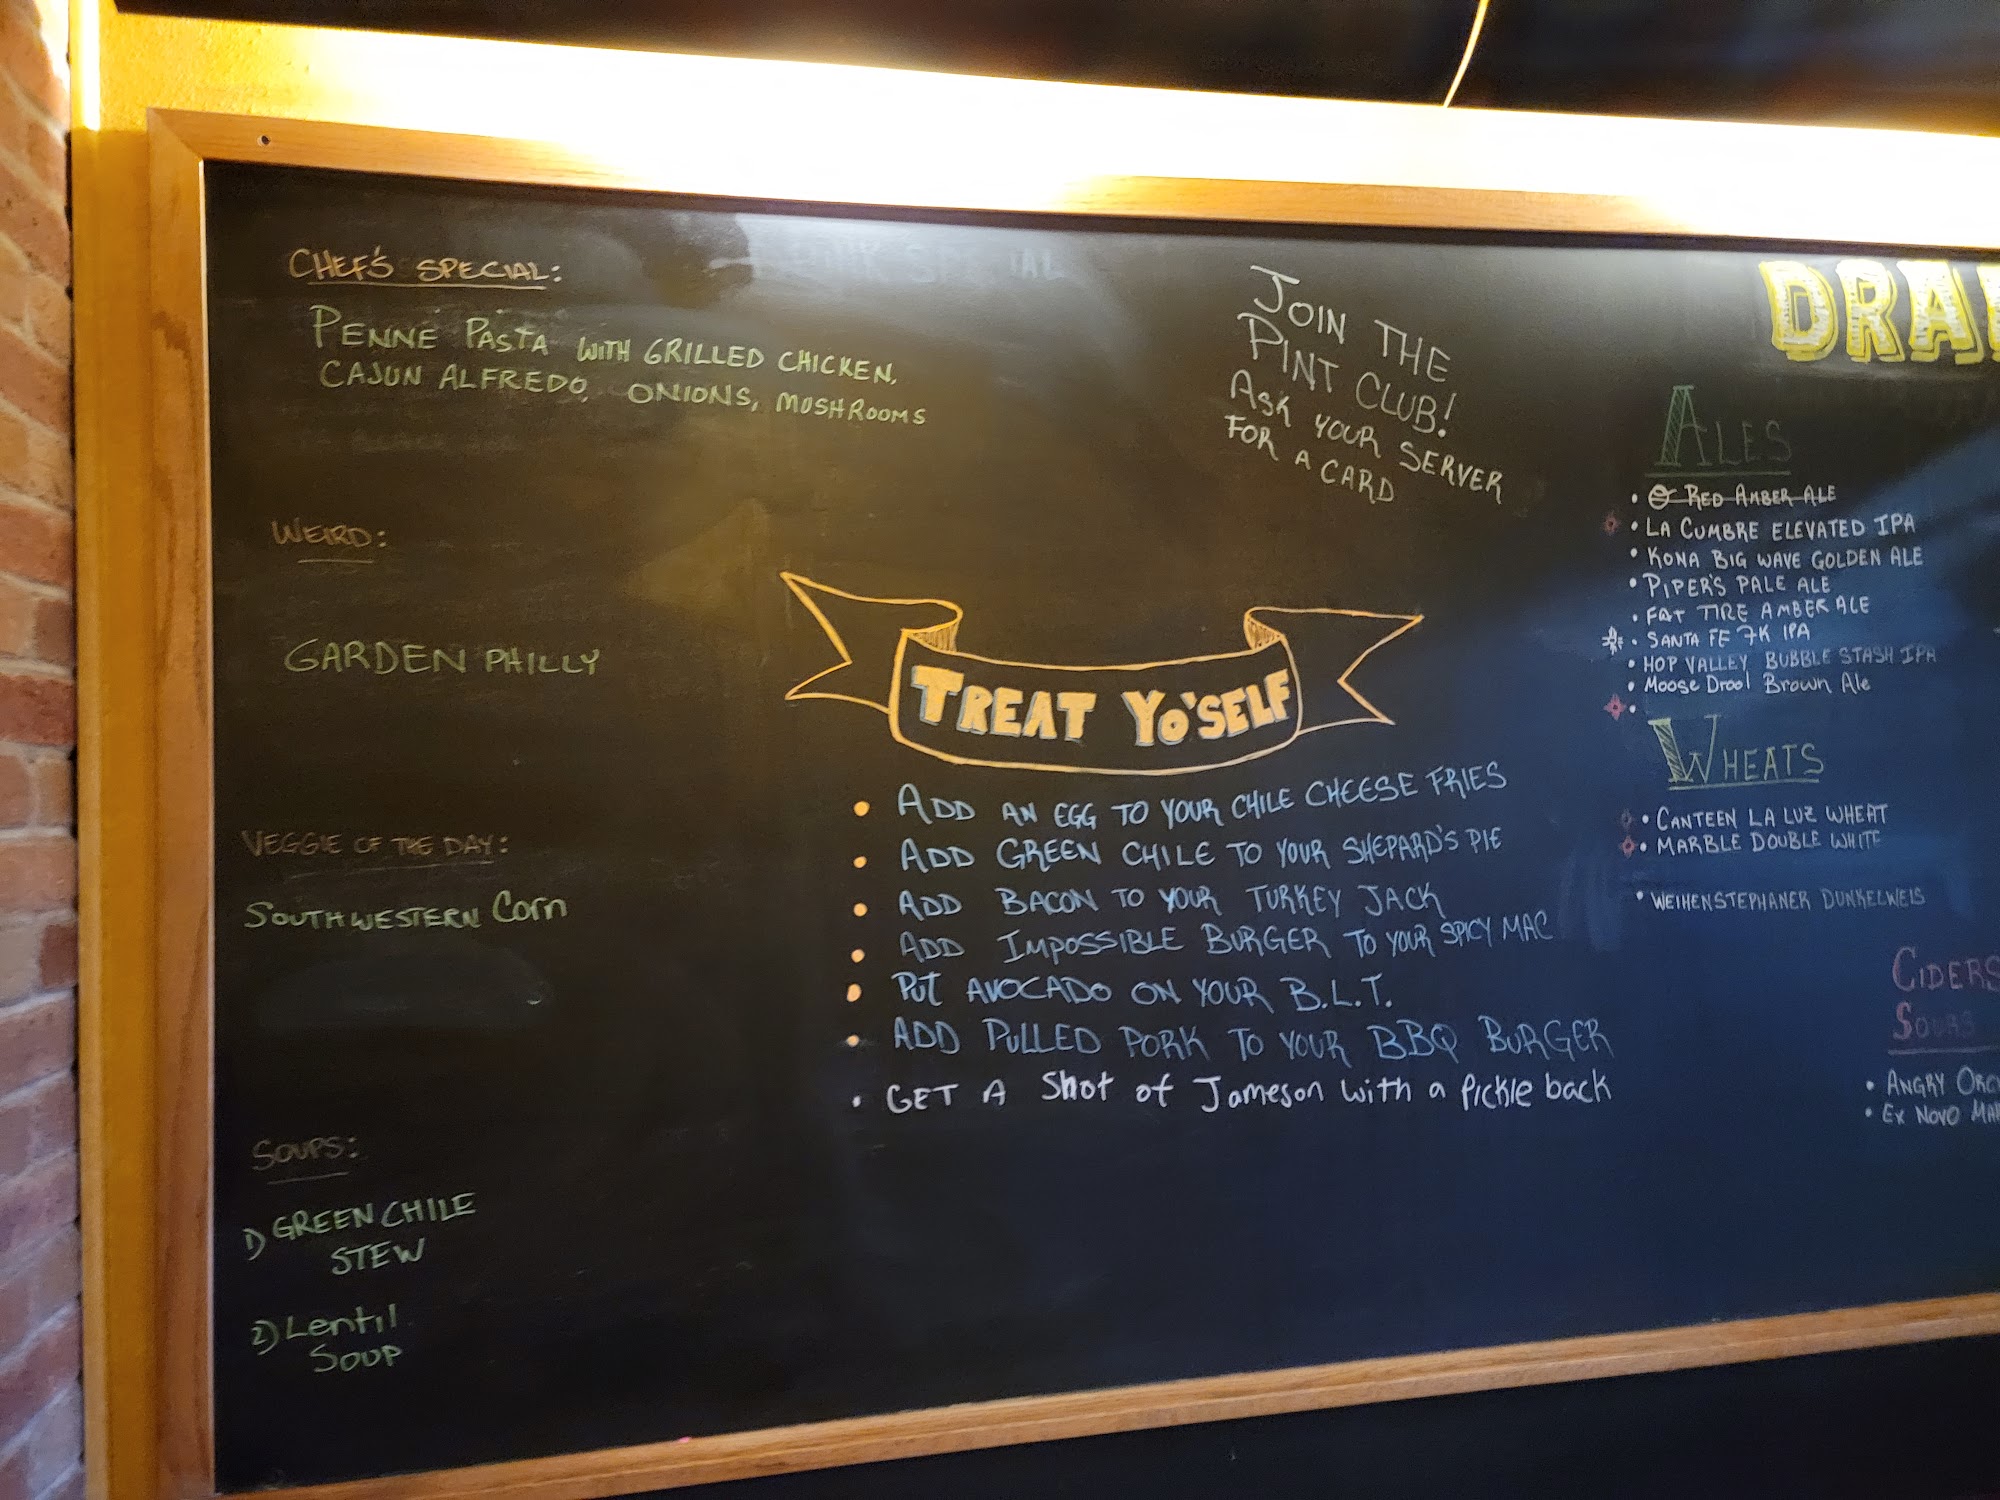 CHEF'S SPECIAL:
PENNE PASTA WITH GRILLED CHICKEN,
CAJUN ALFREDO, ONIONS, MUSHROOMS
WEIRD:
GARDEN PHILLY
VEGGIE OF THE DAY:
SOUTHWESTERN Corn
SOUPS:
1) GREEN CHILE
STEW
2) Lentil
SOUP
JOIN THE
PINT CLUB!
ASK YOUR SERVER
FOR A CARD
TREAT YO'SELF
• ADD AN EGG TO YOUR CHILE CHEESE FRIES
• ADD GREEN CHILE TO YOUR SHEPARD'S PIE
• ADD BACON TO YOUR TURKEY JACK
• ADD IMPOSSIBLE BURGER TO YOUR SPICY MAC
• PUT AVOCADO ON YOUR B.L.T.
• ADD PULLED PORK TO YOUR BBQ BURGER
• GET A Shot of Jameson with a Pickle back
DRA
ALES
• RED AMBER ALE
• LA CUMBRE ELEVATED IPA
• KONA BIG WAVE GOLDEN ALE
• PIPER'S PALE ALE
• FAT TIRE AMBER ALE
• SANTA FE 7K IPA
• HOP VALLEY BUBBLE STASH IPA
• Moose Drool Brown Ale
•
WHEATS
• CANTEEN LA LUZ WHEAT
• MARBLE DOUBLE WHITE
• WEIHENSTEPHANER DUNKELWEIS
CIDERS
SOURS
• ANGRY ORC
• EX NOVO MA